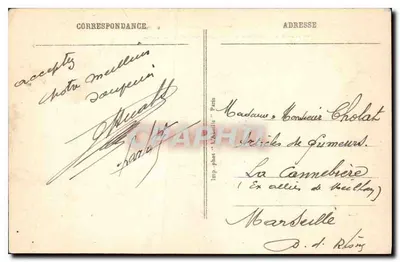 CORRESPONDANCE
ADRESSE
acceptez
notre meilleur
souvenir
Madame & Monsieur Cholat
Articles de fumeurs.
La Cannebière
(Ex allées de Meilhan)
Marseille
B. d. Rhône
Imp. phot Paris
CPArama